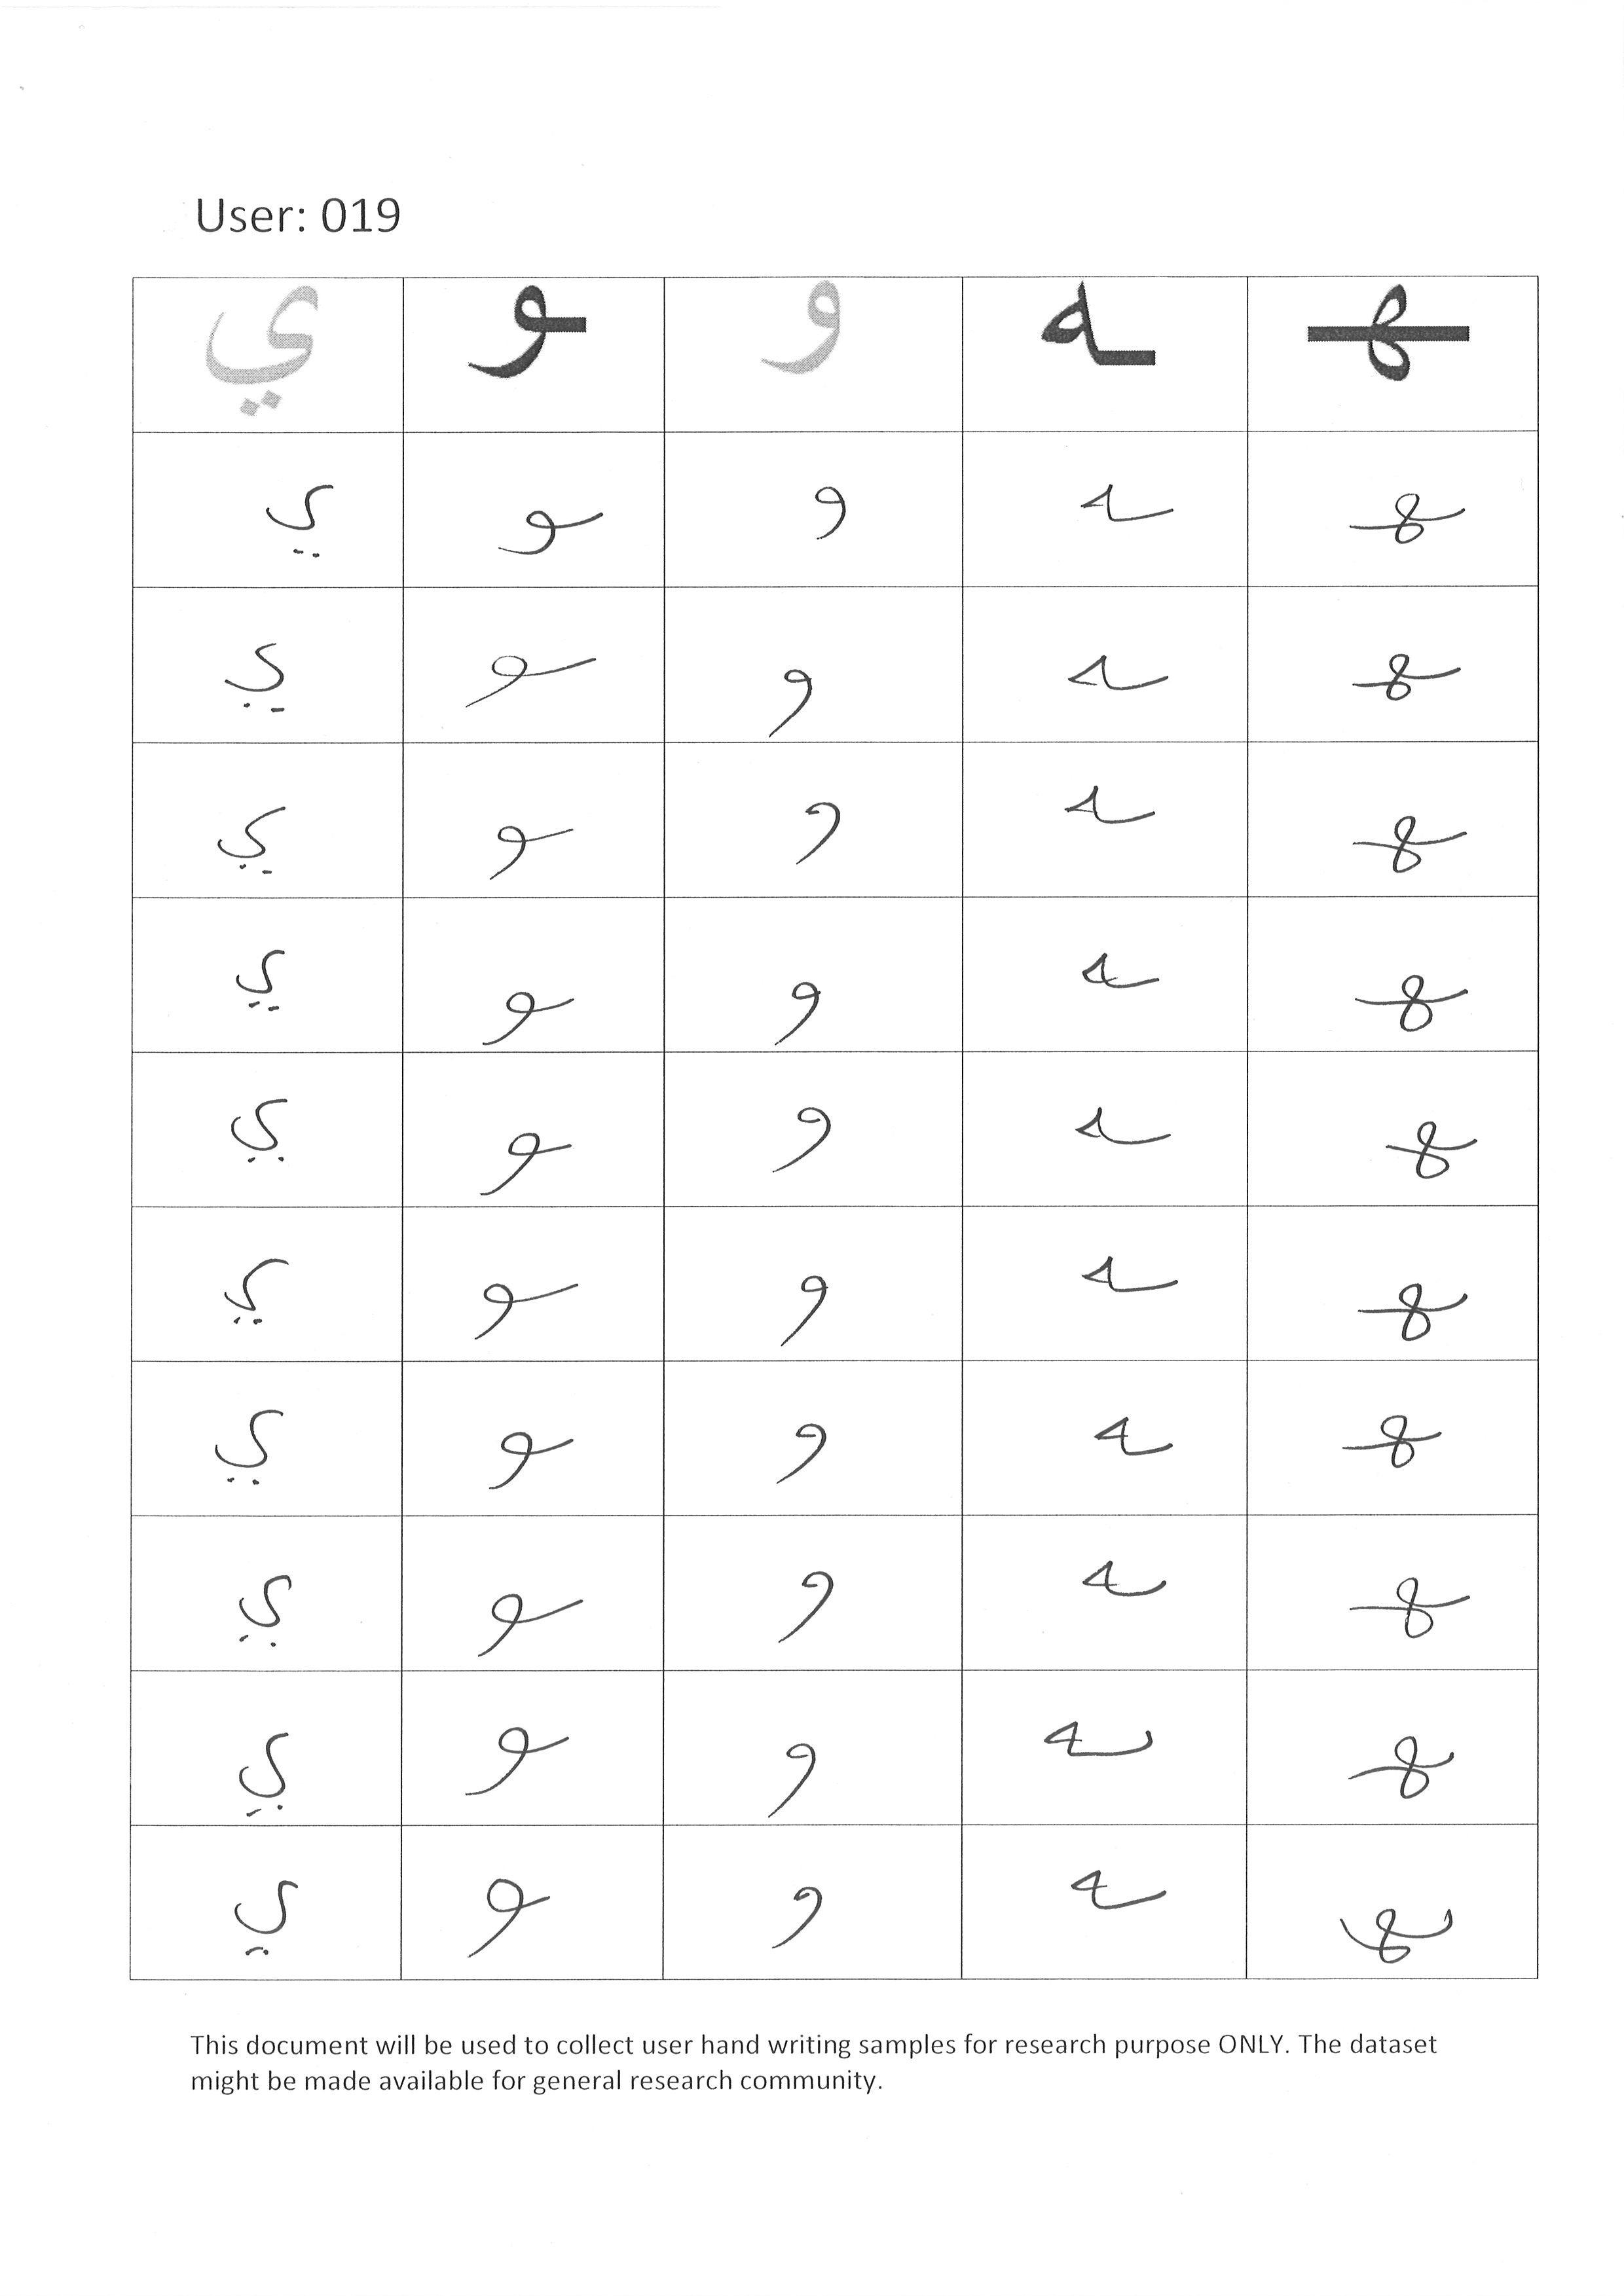 User: 019
ي ـو و ـه ـهـ
ي ـو و ـه ـهـ
ي ـو و ـه ـهـ
ي ـو و ـه ـهـ
ي ـو و ـه ـهـ
ي ـو و ـه ـهـ
ي ـو و ـه ـهـ
ي ـو و ـه ـهـ
ي ـو و ـه ـهـ
ي ـو و ـه ـهـ
ي ـو و ـه ـهـ
This document will be used to collect user hand writing samples for research purpose ONLY. The dataset
might be made available for general research community.